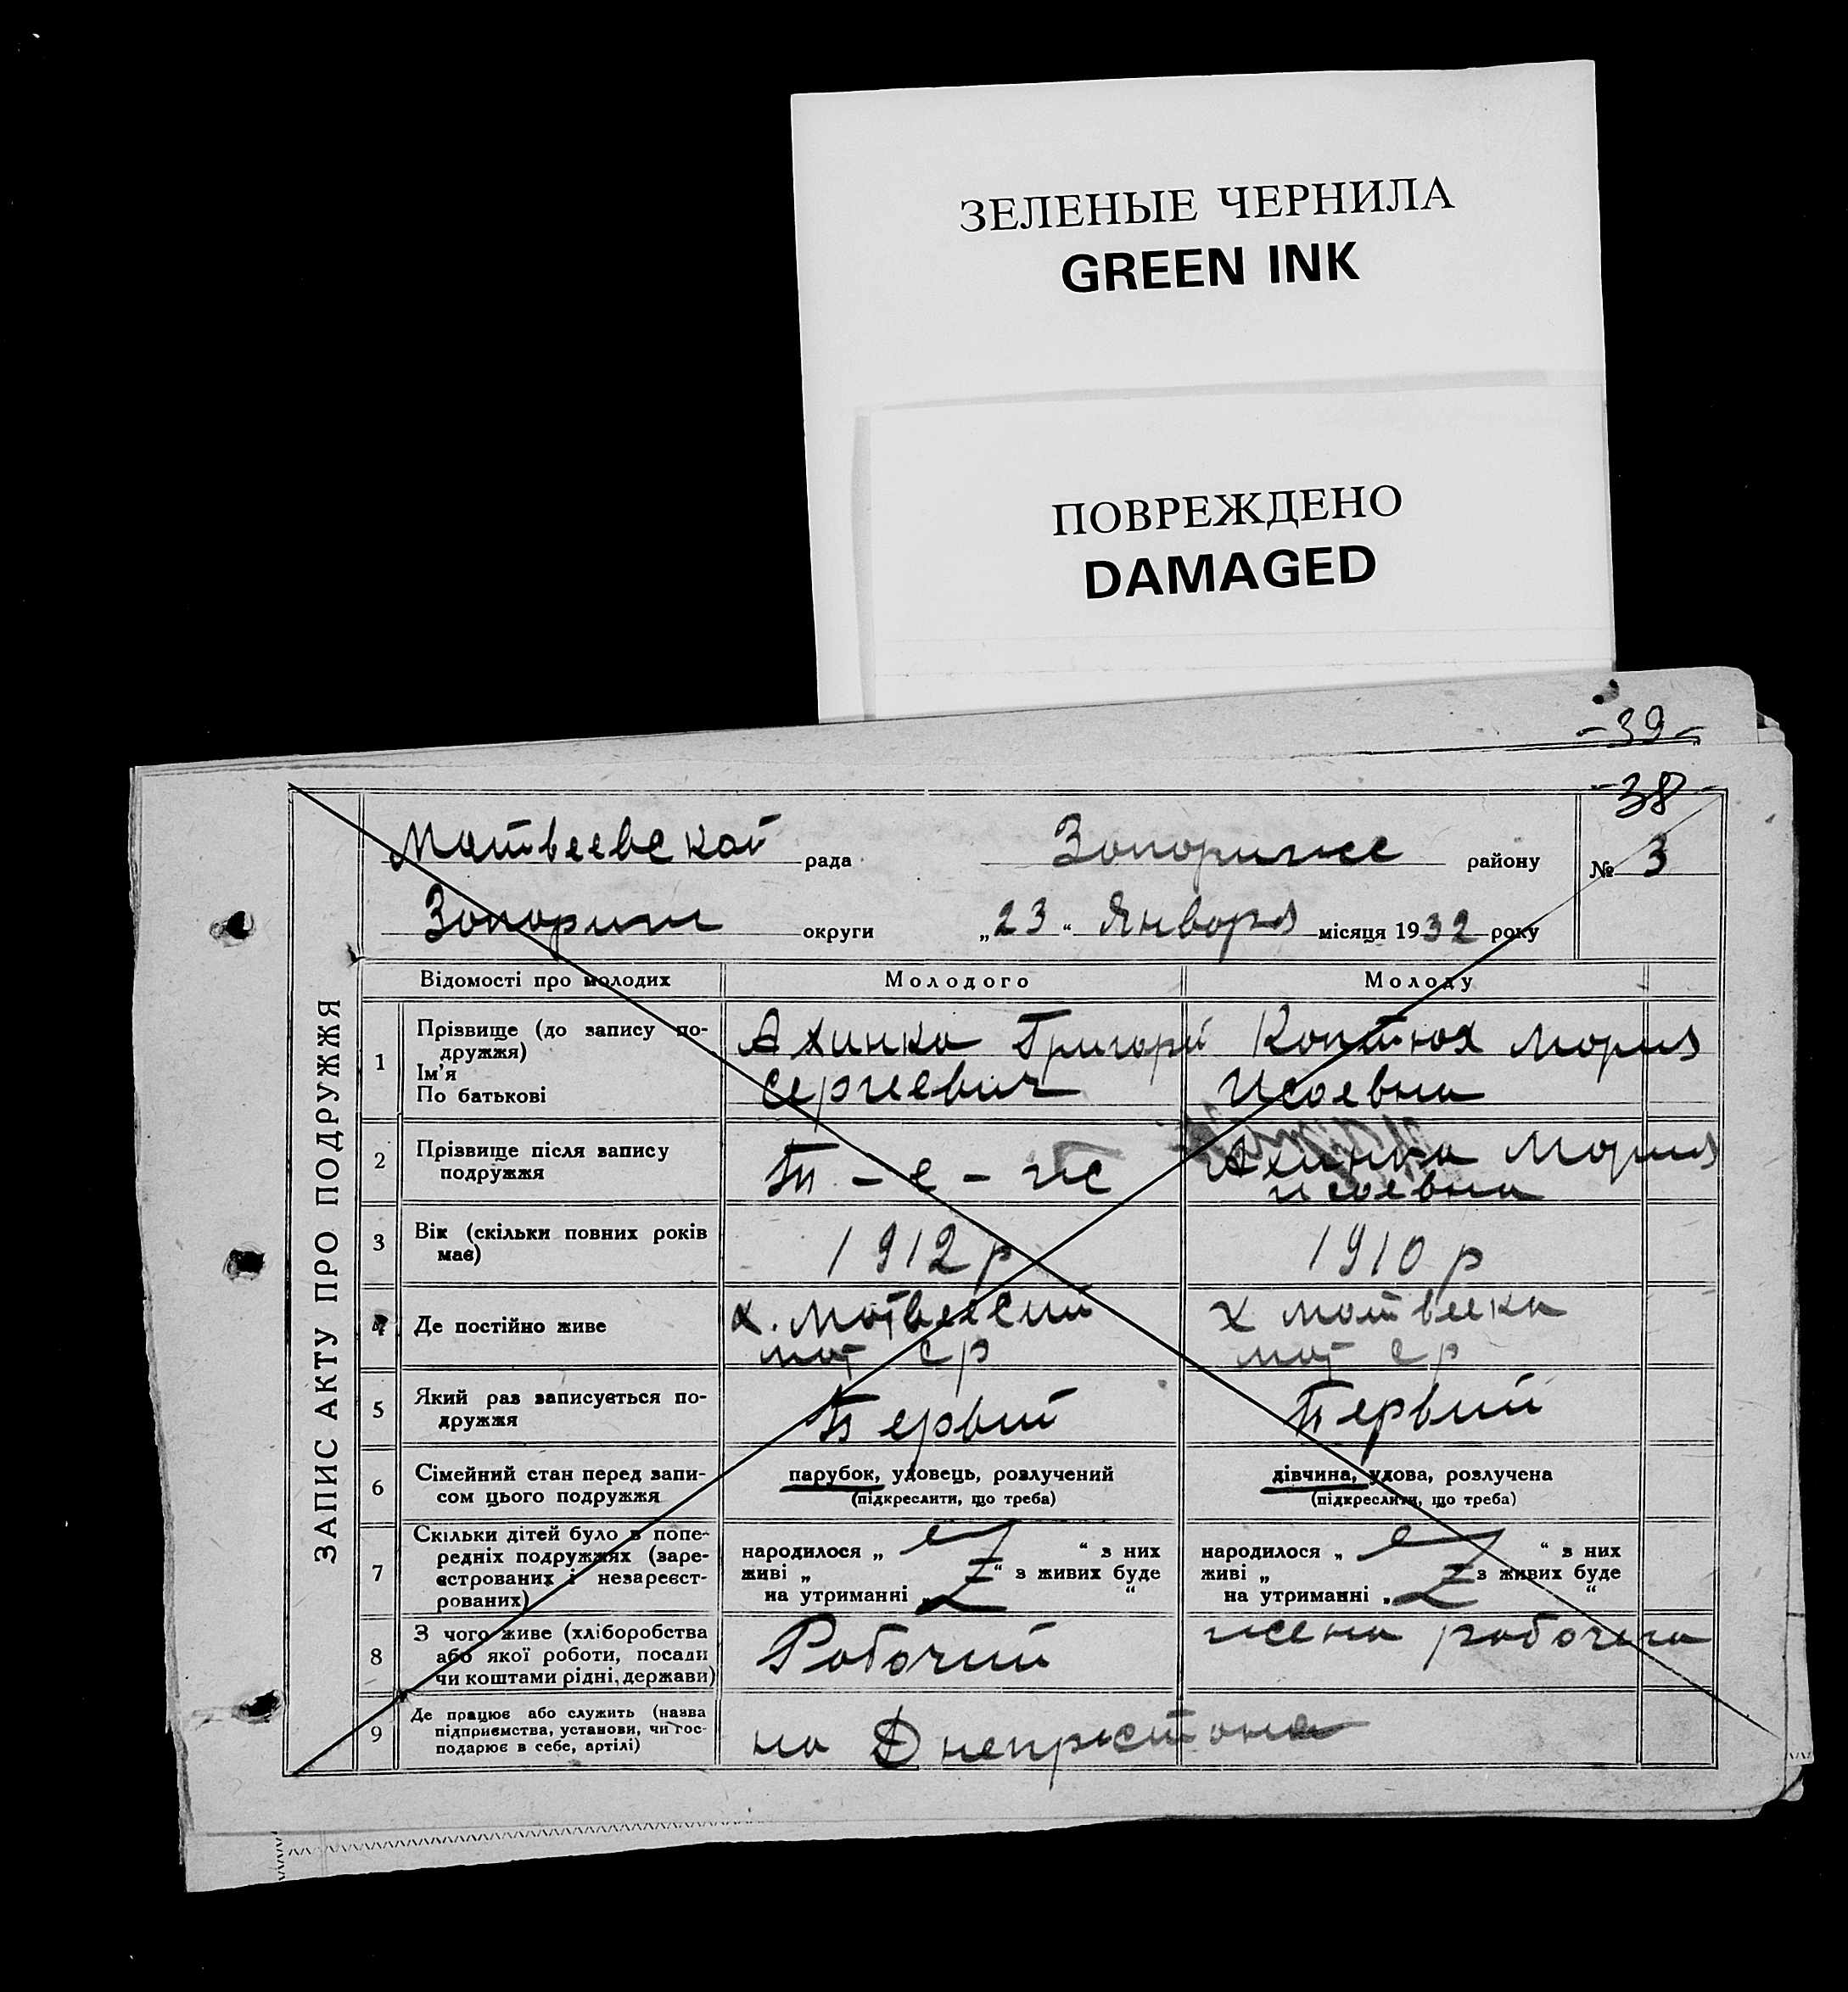 ЗЕЛЕНЫЕ ЧЕРНИЛА
GREEN INK
ПОВРЕЖДЕНО
DAMAGED
-39-
-38-
ЗАПИС АКТУ ПРО ПОДРУЖЖЯ
Матвеевской рада Запорижсе району № 3
Запориж округи „23“ Января місяця 1932 року
Відомості про молодих Молодого Молоду
1 Прізвище (до запису по-
дружжя)
Ім'я
По батькові
Ахинка Григорій
Сергеевич
Коптюх Мария
Исаевна
2 Прізвище після запису
подружжя
Т - е - же
Ахинка Мария
Исаевна
3 Вік (скільки повних років
має)
1912 р
1910 р
4 Де постійно живе
х.
мат ср
х матвеевка
мат ср
5 Який раз записується по-
дружжя
Первий
Первий
6 Сімейний стан перед запи-
сом цього подружжя
парубок, удовець, розлучений
(підкреслити, що треба)
дівчина, удова, розлучена
(підкреслити, що треба)
7 Скільки дітей було в попе-
редніх подружжях (заре-
єстрованих і незареєст-
рованих)
народилося „ “ з них
живі „ “ з живих буде
на утриманні „ “
народилося „ “ з них
живі „ з живих буде
на утриманні „ “
8 З чого живе (хліборобства
або якої роботи, посади
чи коштами рідні, держави)
Робочий
жена рабочего
9 Де працює або служить (назва
підприємства, установи, чи гос-
подарює в себе, артілі)
на